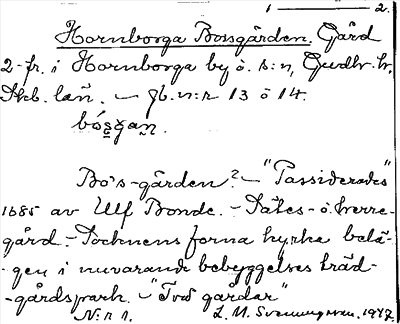 1 — 2.
Hornborga Bossgården. Gård
2-fr. i Hornborga by o. s:n, Gudh. hr,
Skb. län. — Jb. n:r 13 o 14.
bós̱ǧan.
Bo's-gården? — "Passiderades"
1685 av Ulf Bonde. — Sätes- o. herre-
gård. — Socknens forna kyrka belä-
gen i nuvarande bebyggelses träd-
gårdspark. — "Två gårdar"
N:r 1. L. M. Svenungsson. 1947.